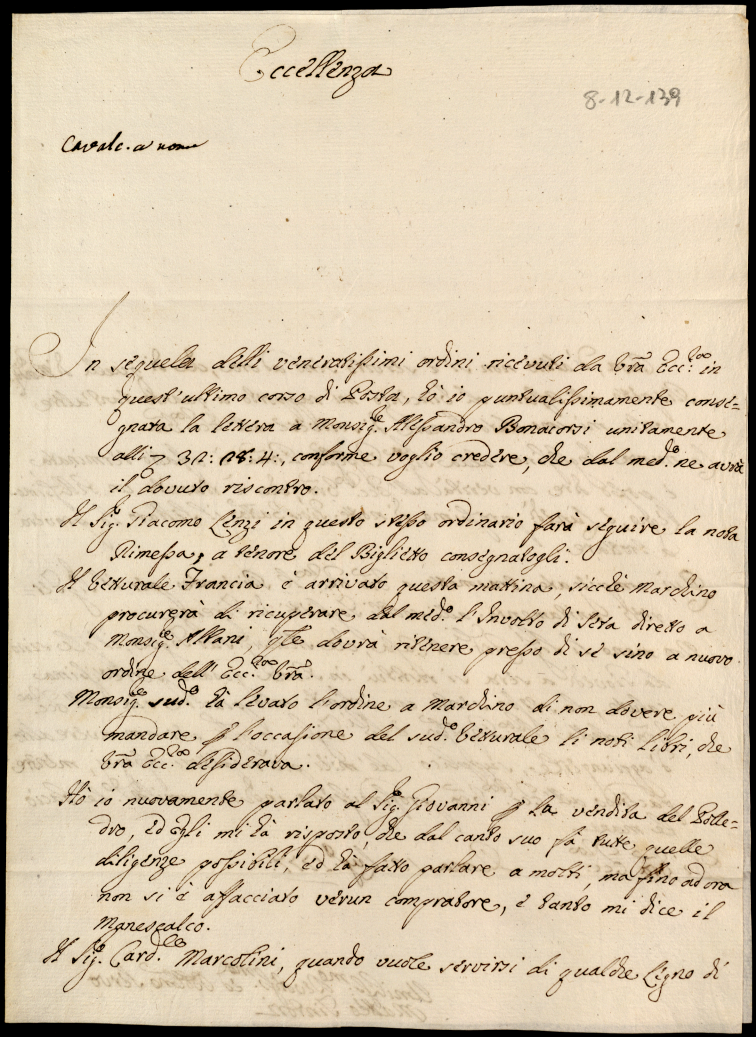 Eccellenza
8-12-139
Cavalc. a nome
In sequela delli veneratissimi ordini ricevuti da Vrã Ecc.za in
quest'ultimo corso di Posta, hò io puntualissimamente conse=
gnata la lettera a Monsig.e Alessandro Bonacorsi unitamente
alli 31: 4:, conforme voglio credere, che dal med.o ne avrà
il dovuto riscontro.
Il Sig.e Giacomo Lenzi in questo stesso ordinario farà seguire la nota
Rimessa, a tenore del Biglietto consegnatogli.
Il Vetturale Francia è arrivato questa mattina, sicchè Marchino
procurerà di ricuperare dal med.o l'Involto di Seta diretto a
Monsig.e Albani, qle dovrà ritenere presso di se sino a nuovo
ordine dell'Ecc.za Vrã.
Monsig.e sud.o hà levato l'ordine a Marchino di non dovere più
mandare p l'occasione del sud.o Vetturale li noti Libri, che
Vrã Ecc.za desiderava.
Hò io nuovamente parlato al Sig.e Giovanni p la vendita del Polle=
dro, ed egli mi hà risposto, che dal canto suo fà tutte quelle
diligenze possibili, ed hà fatto parlare a molti, ma fino ad ora
non si è affacciato verun compratore, e tanto mi dice il
Manescalco.
Il Sig.e Card.le Marcolini, quando vuole servirsi di qualche Legno di